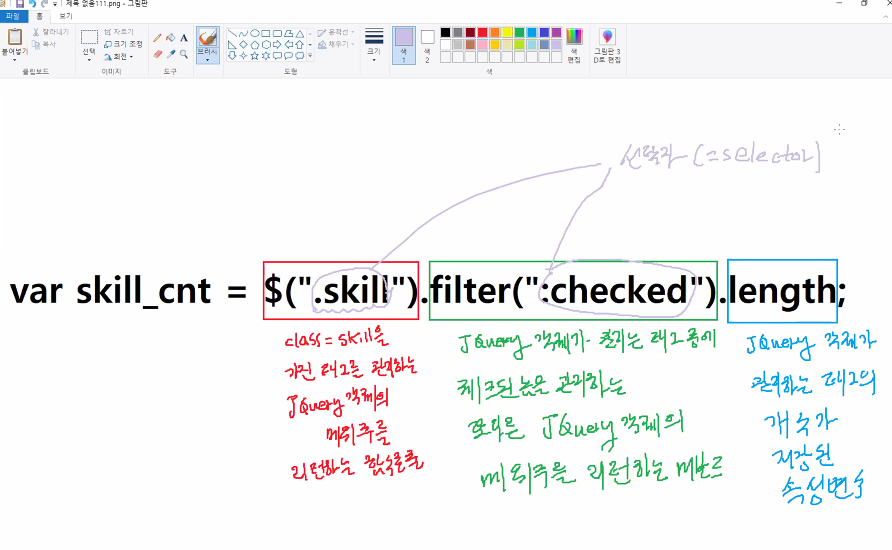 제목 없음111.png - 그림판
파일 홈 보기
붙여넣기
잘라내기
복사
클립보드
선택
자르기
크기 조정
회전
이미지
A
도구
브러시
윤곽선
채우기
도형
크기
색 1
색 2
색 편집
색
그림판 3D로 편집
선택자 (=selector)
var skill_cnt = $(".skill").filter(":checked").length;
class=skill을
가진 태그를 관리하는
JQuery 객체의
메위주를
리턴하는 함수호출
JQuery 객체가 관리하는 태그 중에
체크된 놈을 관리하는
또다른 JQuery 객체의
메위주를 리턴하는 메소드
JQuery 객체가
관리하는 태그의
개수가
저장된
속성변수